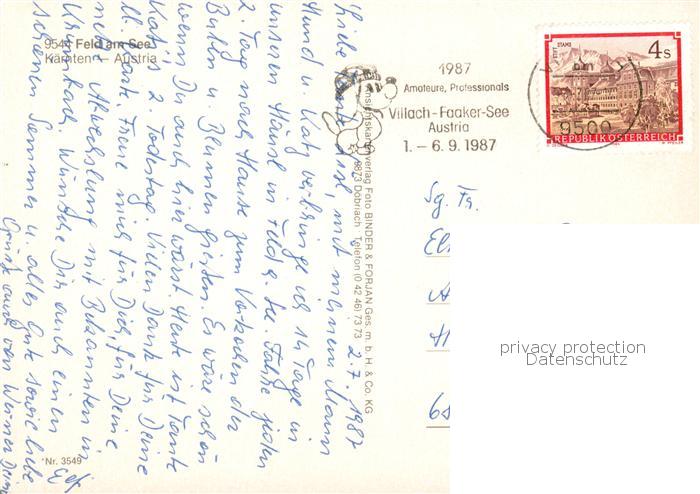 9544 Feld am See
Kärnten – Austria
1987
Amateure, Professionals
Villach-Faaker-See
Austria
1. – 6. 9. 1987
9500
STIFT STAMS
4 S
REPUBLIK ÖSTERREICH
Ansichtskartenverlag Foto BINDER & FORJAN Ges. m. b. H. & Co. KG
9873 Döbriach - Telefon (0 42 46) 73 73
2.7. 1987
Liebe mit meinem Mann
Hund u. Katz verbringe ich 14 Tage in
unserem Häusl in Feld a. See. Fahre jeden
2. Tag nach Hause zum Vorkochen der
Buben u. Blumen gießen. Es wäre schön
wenn Du auch hier wärst. Heute ist Tante
2. Todestag. Vielen Dank für Deine
Freue mich für Dich, für Deine
Abwechslung mit Bekannten in
Wünsche Dir auch einen
schönen Sommer u. alles Gute sowie liebe
Grüße auch von Werner Deine
Nr. 3549
Sg. Fr.
privacy protection
Datenschutz